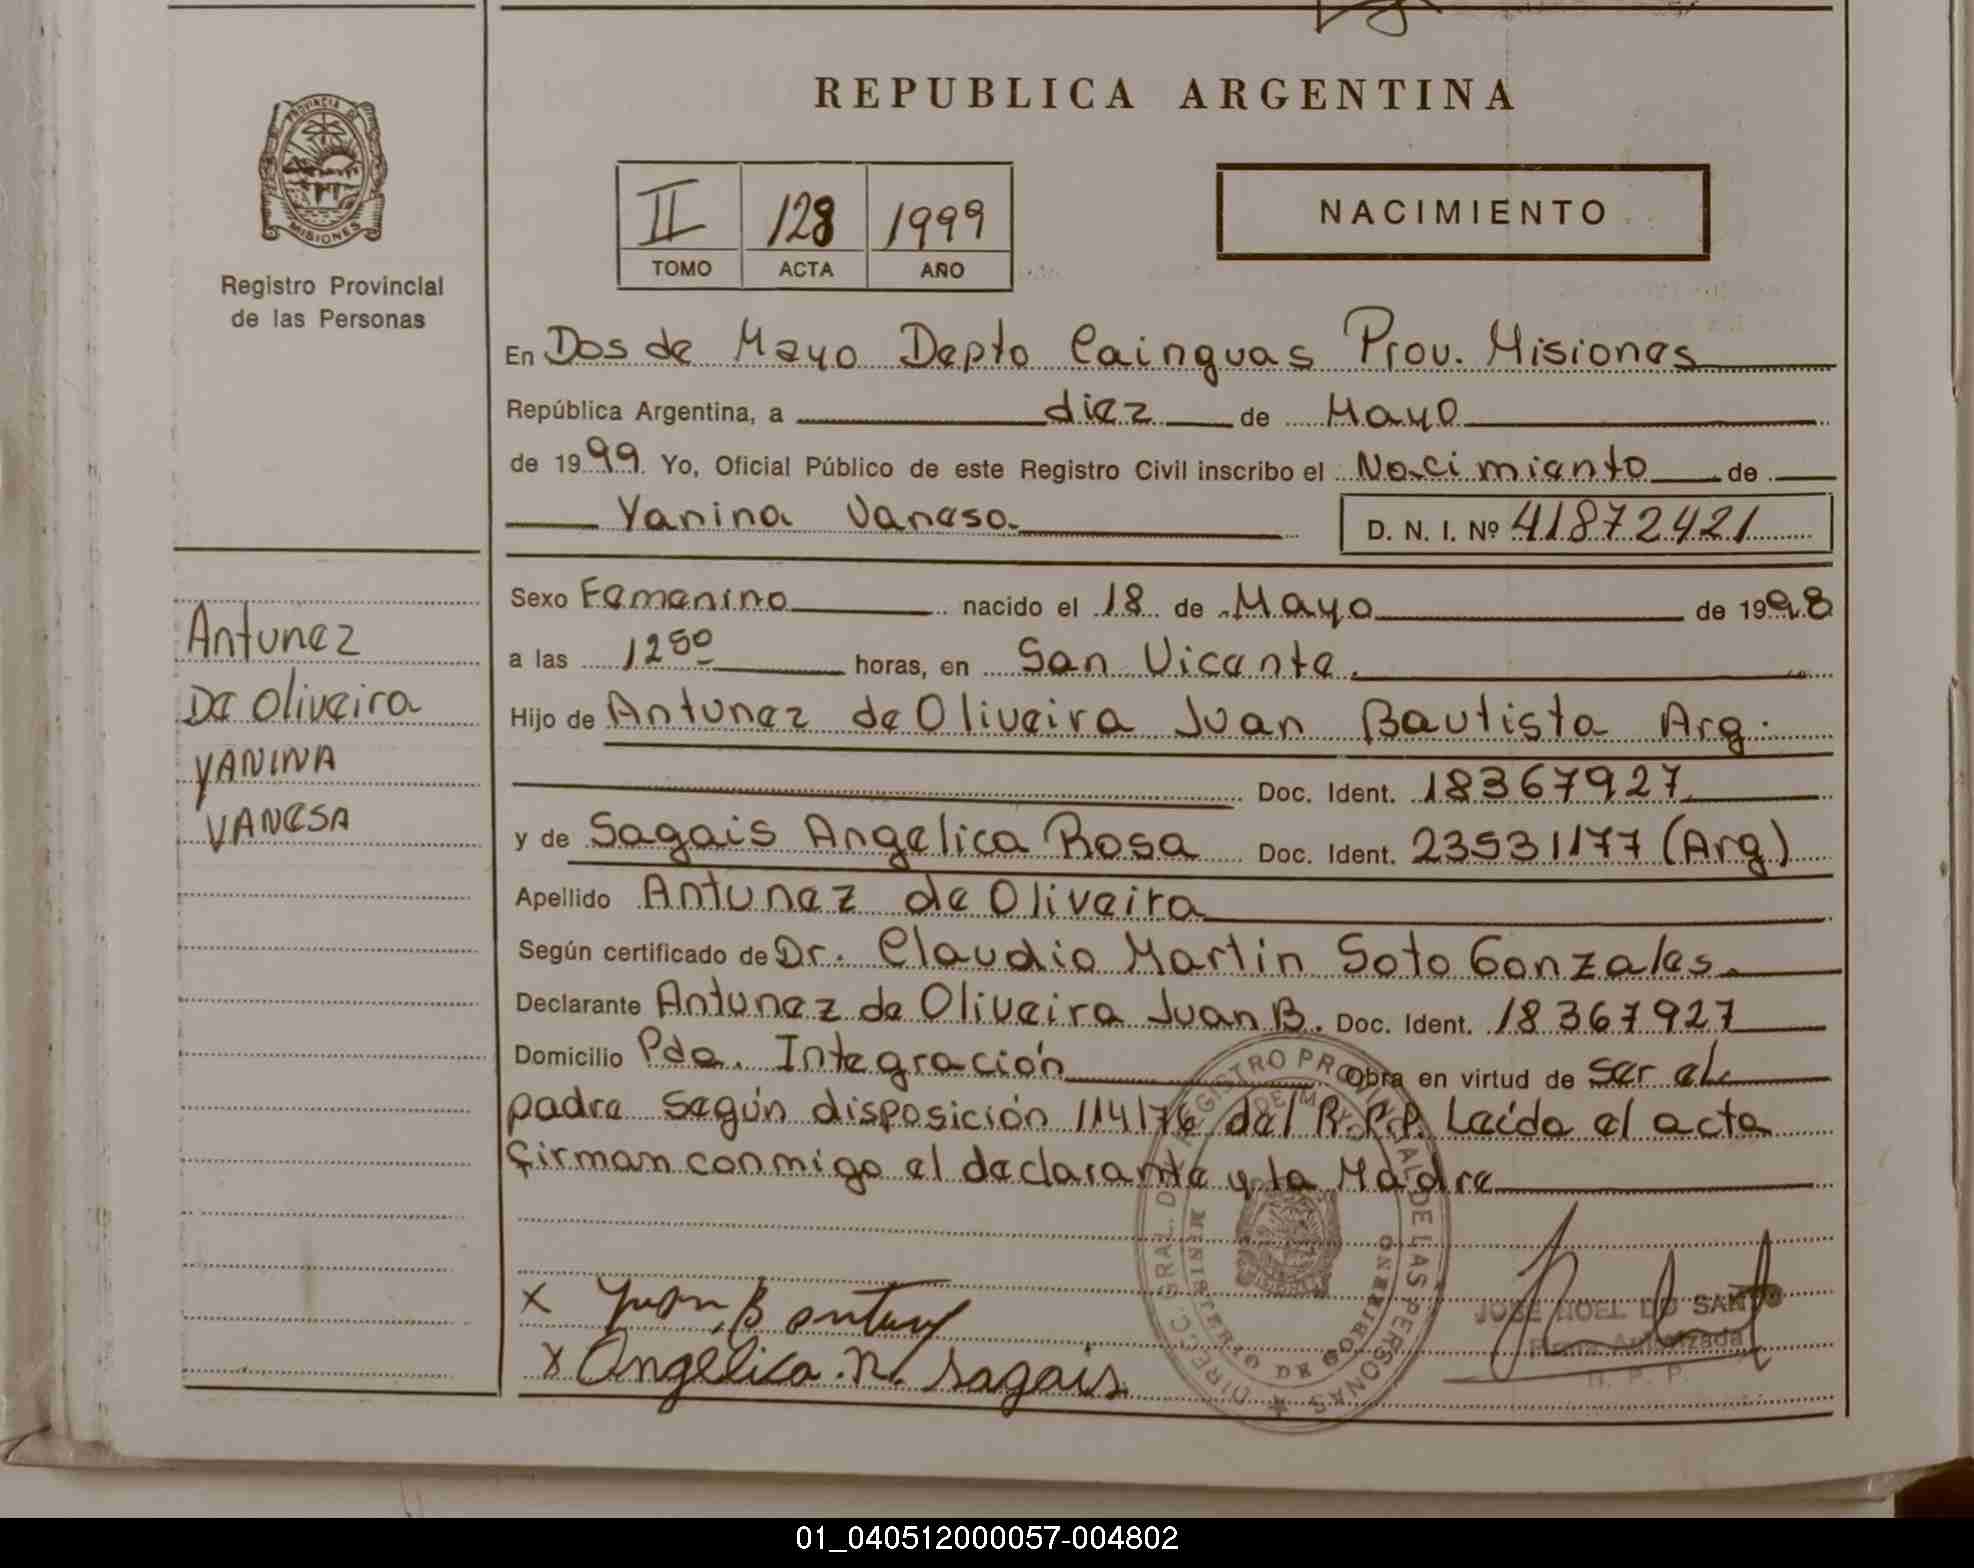 REPUBLICA ARGENTINA
PROVINCIA DE
MISIONES
Registro Provincial
de las Personas
II 128 1999
TOMO ACTA AÑO
NACIMIENTO
En Dos de Mayo Depto Cainguas Prov. Misiones
República Argentina, a diez de Mayo
de 1999 Yo, Oficial Público de este Registro Civil inscribo el Nacimiento de
Yanina Vanesa D. N. I. Nº 41872421
Sexo Femenino nacido el 18 de Mayo de 1998
a las 12 50 horas, en San Vicente.
Hijo de Antunez de Oliveira Juan Bautista Arg.
Doc. Ident. 18367927
y de Sagais Angelica Rosa Doc. Ident. 23531177 (Arg)
Apellido Antunez de Oliveira
Según certificado de Dr. Claudio Martin Soto Gonzales.
Declarante Antunez de Oliveira Juan B. Doc. Ident. 18367927
Domicilio Pda. Integración Obra en virtud de ser el
padre según disposición 114/76 del R.P.P. Leída el acta
firman conmigo el declarante y la Madre
Antunez
De Oliveira
YANINA
VANESA
DIRECC. GRAL. DEL REGISTRO PROVINCIAL DE LAS PERSONAS
MINISTERIO DE GOBIERNO
X Juan B antunez
X Angelica R. sagais
JOSE NOEL DO SANTO
Firma Autorizada
R. P. P.
01_040512000057-004802